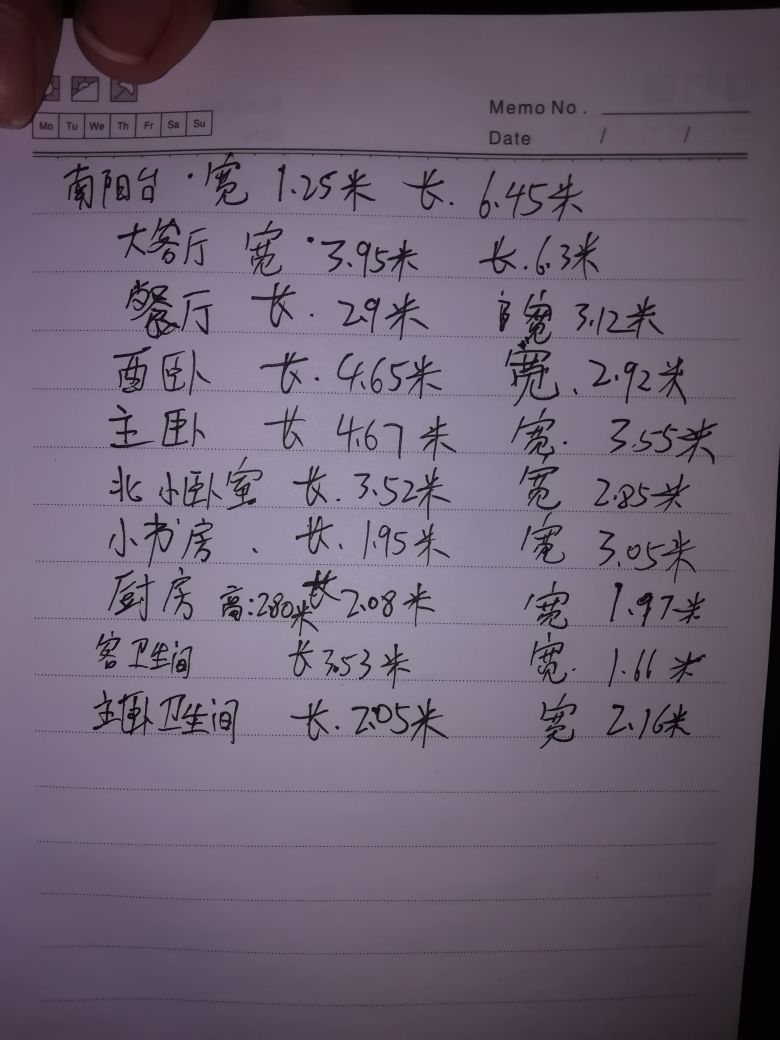 Mo Tu We Th Fr Sa Su
Memo No.
Date / /
南阳台·宽 1.25米 长. 6.45米
大客厅 宽·3.95米 长.6.3米
餐厅 长. 2.9米 宽 3.12米
西卧 长. 4.65米 宽. 2.92米
主卧 长 4.67米 宽. 3.55米
北小卧室 长. 3.52米 宽 2.85米
小书房. 长. 1.95米 宽 3.05米
厨房 高:2.80米 长 2.08米 宽 1.97米
客卫生间 长3.53米 宽. 1.66米
主卧卫生间 长. 2.05米 宽 2.16米